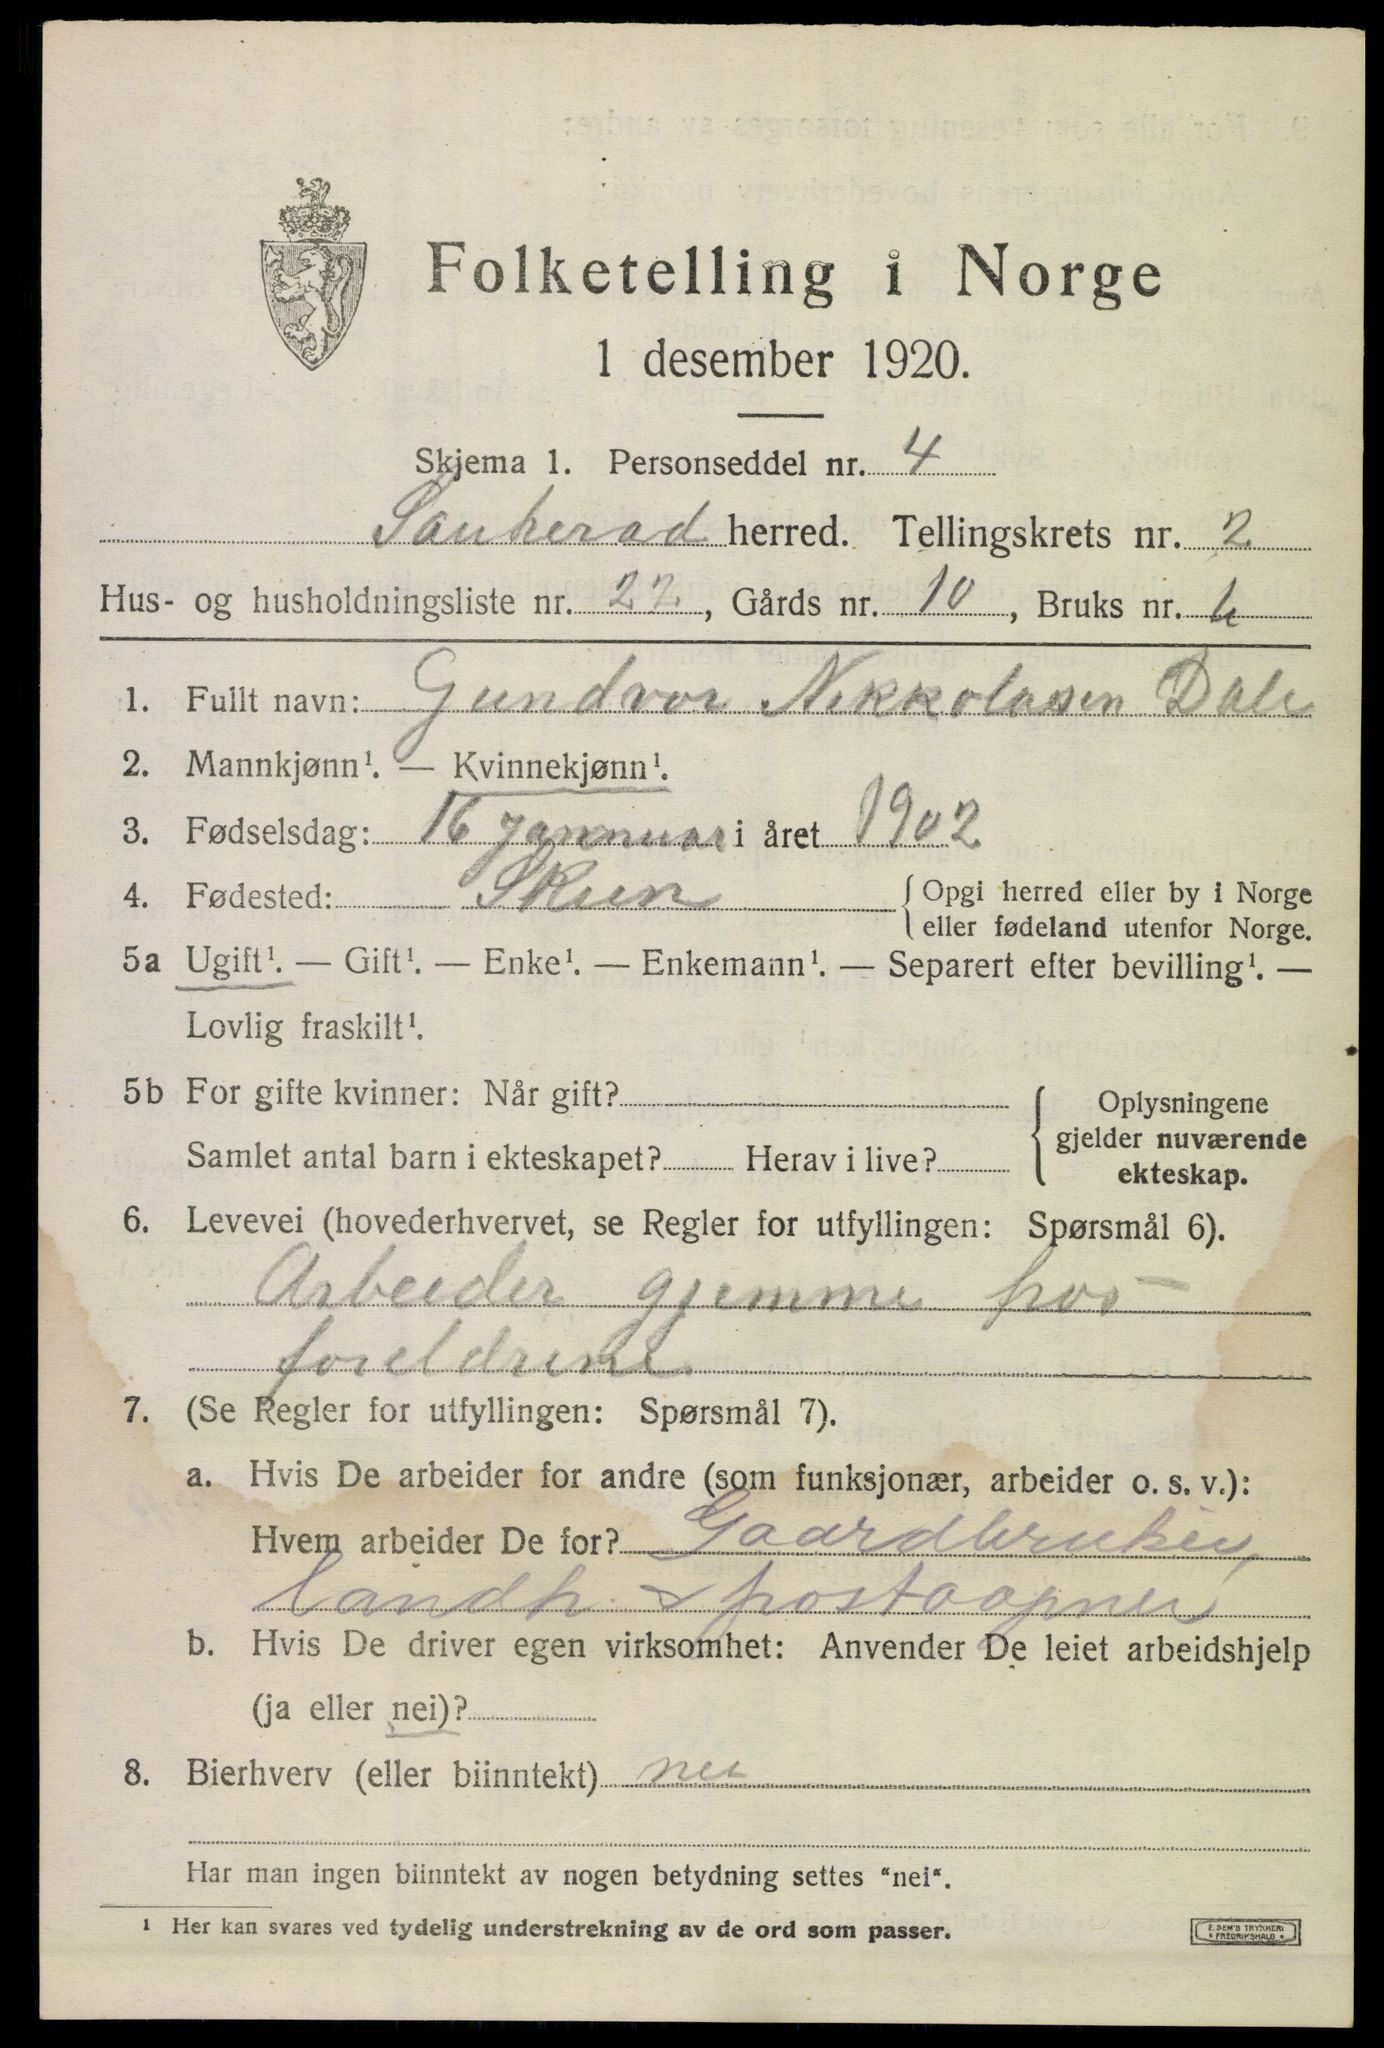 Folketelling i Norge
1 desember 1920.
Skjema 1. Personseddel nr. 4
Sauherad herred. Tellingskrets nr. 2
Hus- og husholdningsliste nr. 22, Gårds nr. 10, Bruks nr. 6
1. Fullt navn: Gundvor Nekkolasen Dale
2. Mannkjønn¹. — Kvinnekjønn¹.
3. Fødselsdag: 16 januar i året 1902
4. Fødested: Skien { Opgi herred eller by i Norge
eller fødeland utenfor Norge.
5a Ugift¹. — Gift¹. — Enke¹. — Enkemann¹. — Separert efter bevilling¹. —
Lovlig fraskilt¹.
5b For gifte kvinner: Når gift?
Samlet antal barn i ekteskapet? Herav i live?
Oplysningene
gjelder nuværende
ekteskap.
6. Levevei (hovederhvervet, se Regler for utfyllingen: Spørsmål 6).
Arbeider gjemme hos
foreldrene
7. (Se Regler for utfyllingen: Spørsmål 7).
a. Hvis De arbeider for andre (som funksjonær, arbeider o. s. v.):
Hvem arbeider De for? Gaardbruker,
landh. & postaapner
b. Hvis De driver egen virksomhet: Anvender De leiet arbeidshjelp
(ja eller nei)?
8. Bierhverv (eller biinntekt) nei
Har man ingen biinntekt av nogen betydning settes "nei".
¹ Her kan svares ved tydelig understrekning av de ord som passer.
E. SEM'S TRYKKERI
FREDRIKSHALD